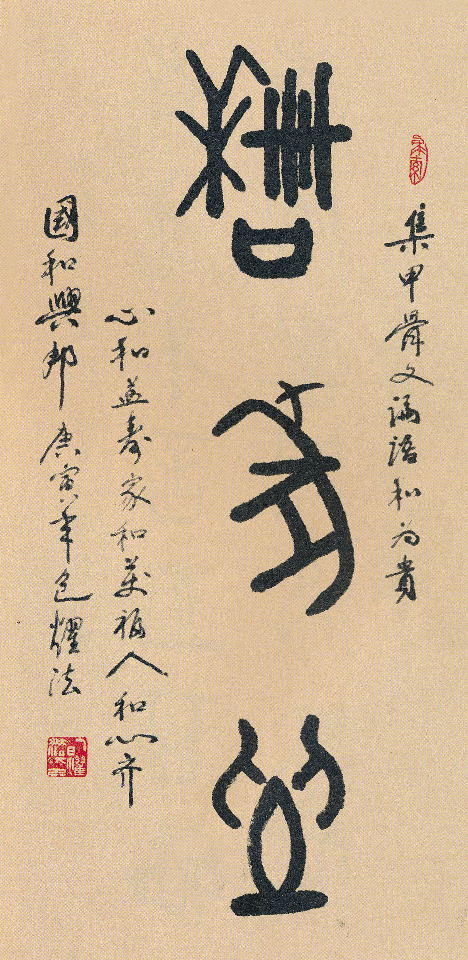 集甲骨文論語和為貴
龢為貴
心和益壽家和萬福人和心齐
國和興邦庚寅年包耀法